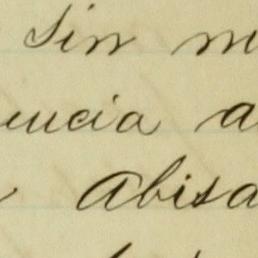 Sin m
encia a
Abisa